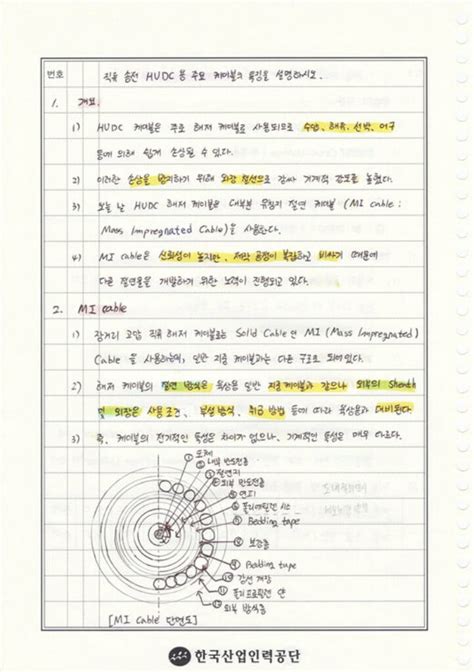 번호
직류 송전 HVDC용 주요 케이블의 특징을 설명하시오.
1. 개요
1) HVDC 케이블은 주로 해저 케이블로 사용되므로 수압, 해류, 선박, 어구
등에 의해 쉽게 손상될 수 있다.
2) 이러한 손상을 방지하기 위해 외장 철선으로 감싸 기계적 강도를 높였다.
3) 오늘날 HVDC 해저 케이블은 대부분 유침지 절연 케이블 (MI cable :
Mass Impregnated Cable)을 사용한다.
4) MI cable은 신뢰성이 높지만, 제작 공정이 복잡하고 비싸기 때문에
다른 절연물을 개발하기 위한 노력이 진행되고 있다.
2. MI cable
1) 장거리 고압 직류 해저 케이블로는 Solid Cable인 MI (Mass Impregnated)
Cable 을 사용하는데, 일반 지중 케이블과는 다른 구조로 되어있다.
2) 해저 케이블의 절연 방식은 육상용 일반 지중케이블과 같으나 외부의 Sheath
및 외장은 사용 조건, 부설 방식, 취급 방법 등에 따라 육상용과 대비된다.
3) 즉, 케이블의 전기적인 특성은 차이가 없으나, 기계적인 특성은 매우 다르다.
① 도체
② 내부 반도전층
③ 절연지
④ 외부 반도전층
⑤ 연피
⑥ 폴리에틸렌 시스
⑦ Bedding tape
⑧ 보강층
⑨ Bedding tape
⑩ 철선 개장
⑪ 폴리프로필렌 얀
⑫ 외부 방식층
[MI Cable 단면도]
한국산업인력공단